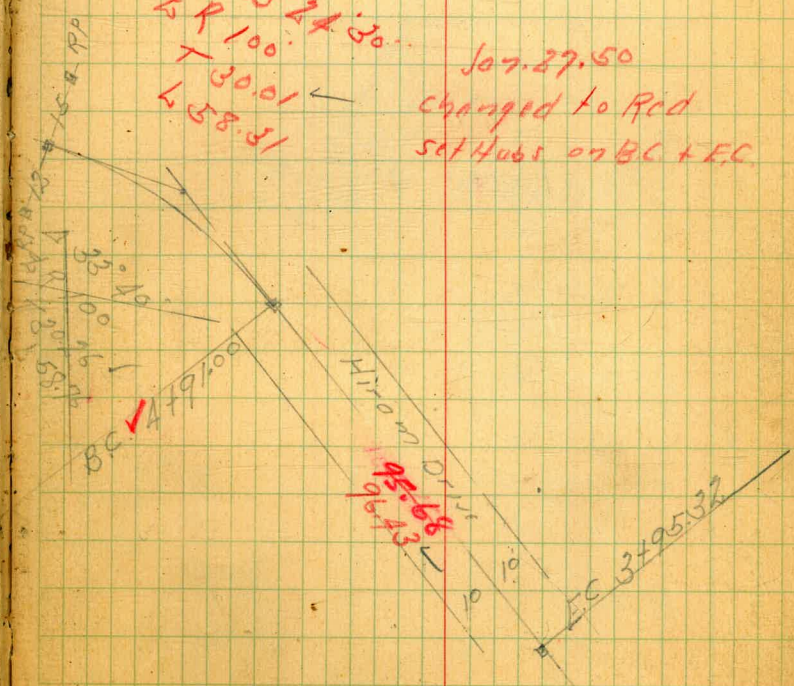 24°30
R 100.
T 30.01 ←
L 58.31
Jan. 27. 50
changed to Red
set Hubs on B.C. + E.C.
33° 40
100
58.76
BC 4+91.00
Hiram Drive
95.68
96.43
10
10
EC 3+95.32